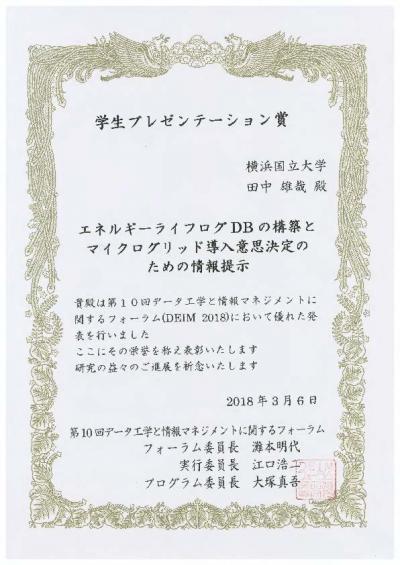 学生プレゼンテーション賞
横浜国立大学
田中 雄哉 殿
エネルギーライフログDBの構築と
マイクログリッド導入意思決定の
ための情報提示
貴殿は第10回データ工学と情報マネジメントに
関するフォーラム(DEIM 2018)において優れた発
表を行いました
ここにその栄誉を称え表彰いたします
研究の益々のご進展を祈念いたします
2018年3月6日
第10回データ工学と情報マネジメントに関するフォーラム
フォーラム委員長 灘本明代
実行委員長 江口浩二
プログラム委員長 大塚真吾